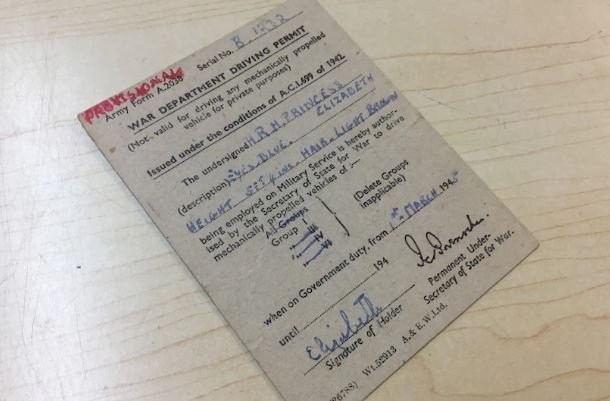 PROVISIONAL
Army Form A.2038 Serial No. B. 1232
WAR DEPARTMENT DRIVING PERMIT
(Not valid for driving any mechanically propelled
vehicle for private purposes)
Issued under the conditions of A.C.I.699 of 1942
The undersigned H.R.H. PRINCESS
ELIZABETH
(description) EYES. BLUE.
HEIGHT 5FT 4 INS. HAIR. LIGHT BROWN
being employed on Military Service is hereby author-
ised by the Secretary of State for War to drive
mechanically propelled vehicles of :—
All Groups
Group I
(Delete Groups
inapplicable)
" III
" IV
" VI
when on Government duty, from 1st MARCH 1945
until 194
Permanent Under-
Secretary of State for War.
Elizabeth
Signature of Holder
Wt.52013 A. & E.W.Ltd.